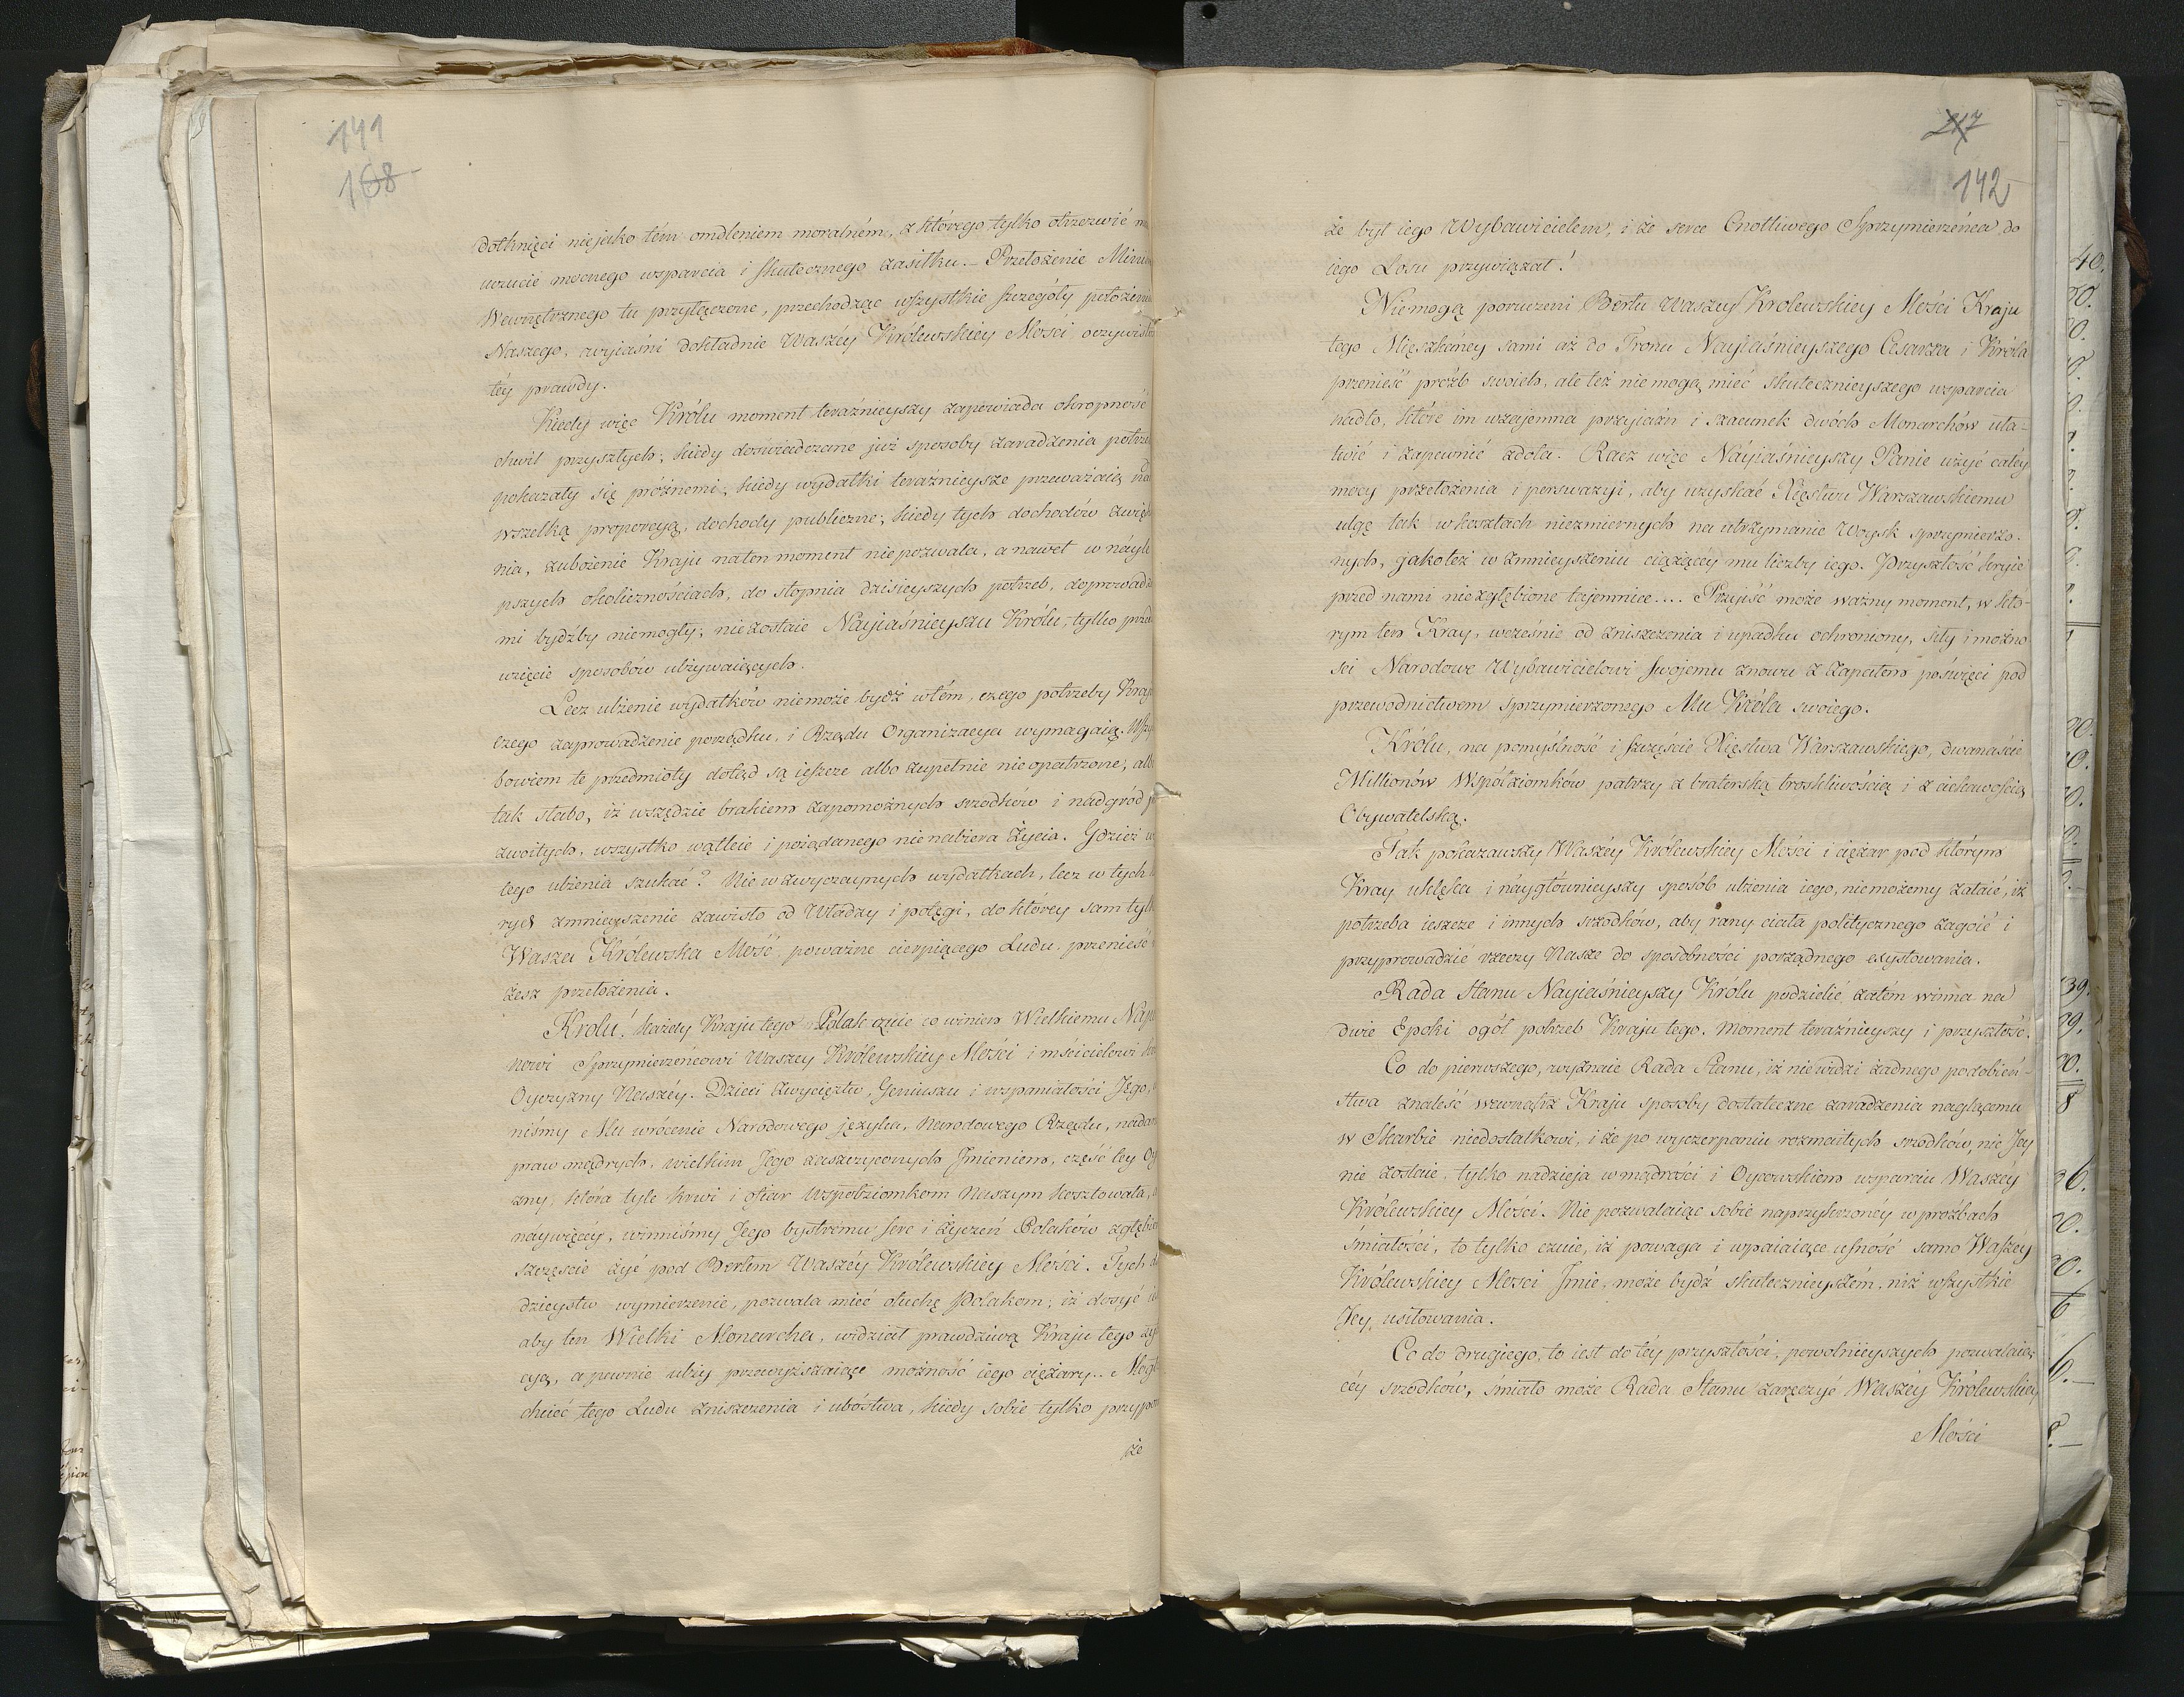 141
168
dotknięci niejako tém omdleniem moralném, z którego tylko otrzezwić
uczucie mocnego wsparcia i skutecznego zasiłku. – Przełożenie
Wewnętrznego tu przyłączone, przechodząc wszystkie szczegóły położenia
Naszego, wyiaśni dokładnie Waszéy Królewskiey Mości oczywistość
téy prawdy.
Kiedy więc Królu moment teraźnieyszy zapowiada okropność
chwil przyszłych; kiedy doświadczone już sposoby zaradzenia
pokazały się próżnemi; kiedy wydatki teraźnieysze przeważaią
wszelką proporcyą, dochody publiczne; kiedy tych dochodów
nia, zubożenie Kraju na ten moment nie pozwala, a nawet w náyle
pszych okolicznościach, do stopnia dzisieyszych potrzeb, doprowadzo
mi bydźby niemogły; nie zostaie Nayiaśnieyszu Królu, tylko
wzięcie sposobów ulżywaiących.
Lecz ulżenie wydatków niemoże bydź w tém, czego potrzeby
czego zaprowadzenie porządku, i Rządu Organizacya wymagaią.
bowiem te przedmioty dotąd są ieszcze albo zupełnie nieopatrzone,
tak słabo, iż wszędzie brakiem zapomożnych srzodków i nadgród
zwoitych, wszystko wątleie i pożądanego nie nabiera Życia. Gdzież
tego ulżenia szukać? Nie w zwyczaynych wydatkach, lecz w tych
rych zmnieyszenie zawisło od Władzy i potęgi, do którey sam
Wasza Królewska Mość, poważne cierpiącego Ludu, przenieść
żesz przełożenia.
Królu! każdy Kraju tego Polak czuie co winien Wielkiemu
nowi Sprzymierzeńcowi Waszey Królewskiey Mości i mścicielowi
Oyczyzny Naszéy. Dzieci zwycięztw, Geniuszu i wspaniałości Jego,
niśmy Mu wrócenie Narodowego języka, Narodowego Rządu,
praw mądrych, wielkim Jego zaszczyconych Jmieniem, część tey
zny, która tyle krwi i ofiar Współziomkom Naszym kosztowała,
náywięcéy, winniśmy Jego bystremu serc i życzeń Polaków
szczęście żyć pod Berłem Waszéy Królewskiey Mości. Tych
dzieystw wymierzenie, pozwala mieć otuchę Polakom; iż dosyć
aby ten Wielki Monarcha, widział prawdziwą Kraju tego
cyą, a pewnie ulży przewyższaiące możność iego ciężary..
chcieć tego Ludu zniszczenia i ubóstwa, kiedy sobie tylko
że
217
142
że był iego Wybawicielem, i że serce Cnotliwego Sprzymierzeńca do
iego Losu przywiązał!
Niemogą poruczeni Berłu Waszey Krolewskiey Mości Kraju
tego Mięszkáńcy sami aż do Tronu Nayiaśnieyszego Cesarza i Króla
przenieść próźb swoich, ale też nie mogą mieć skutecznieyszego wsparcia
nadto, które im wzajemna przyjaźń i szacunek dwóch Monarchów uła-
twić i zapewnić zdoła. Racz więc Náyiaśnieyszy Panie użyć całéy
mocy przełożenia i perswazyi, aby uzyskać Xięstwu Warszawskiemu
ulgę tak w kosztach niezmiernych na utrzymanie Woysk sprzymierzo-
nych, jakoteż w zmnieyszeniu ciążącéy mu liczby iego. Przyszłość kryie
przed nami niezgłębione tajemnice.... Przyjść może ważny moment, w któ-
rym ten Kray, wcześnie od zniszczenia i upadku ochroniony, siły i możno
ści Narodowe Wybawicielowi swojemu znowu z zapałem poświęci pod
przewodnictwem sprzymierzonego Mu Króla swoiego.
Królu, na pomyślność i szczęście Xięstwa Warszawskiego, dwanaście
Millionów Współziomków patrzy z braterską troskliwością i z ciekawością
Obywatelską.
Tak pokazawszy Waszéy Królewskiey Mości i ciężar pod którym
Kray uklęka i náygłównieyszy sposób ulżenia iego, niemożemy zataić, iż
potrzeba ieszcze i innych srzodków, aby rany ciała politycznego zagoić i
przyprowadzić rzeczy Nasze do sposobności porządnego exystowania.
Rada Stanu Nayiaśnieyszy Królu podzielić zatém winna na
dwie Epoki ogół potrzeb Kraju tego. Moment teraźnieyszy i przyszłość.
Co do pierwszego, wyznaie Rada Stanu, iż nie widzi żadnego podobień-
stwa znaleść wewnątrz Kraju sposoby dostateczne zaradzenia naglącemu
w Skarbie niedostatkowi, i że po wyczerpaniu rozmaitych srzodków, nic Jey
nie zostaie, tylko nadzieja w mądrości i Oycowskiem wsparciu Waszéy
Królewskiey Mości. Nie pozwalaiąc sobie naprzykrzonéy w proźbach
śmiałości, to tylko czuie, iż powaga i wpaiaiące ufność samo Waszéy
Królewskiey Mosci Jmie, może bydź skutecznieyszém, niż wszystkie
Jey usiłowania.
Co do drugiego, to iest do téy przyszłości, powolnieyszych pozwalaią
céy srzodków, śmiało może Rada Stanu zaręczyć Waszéy Królewskiey
Mości